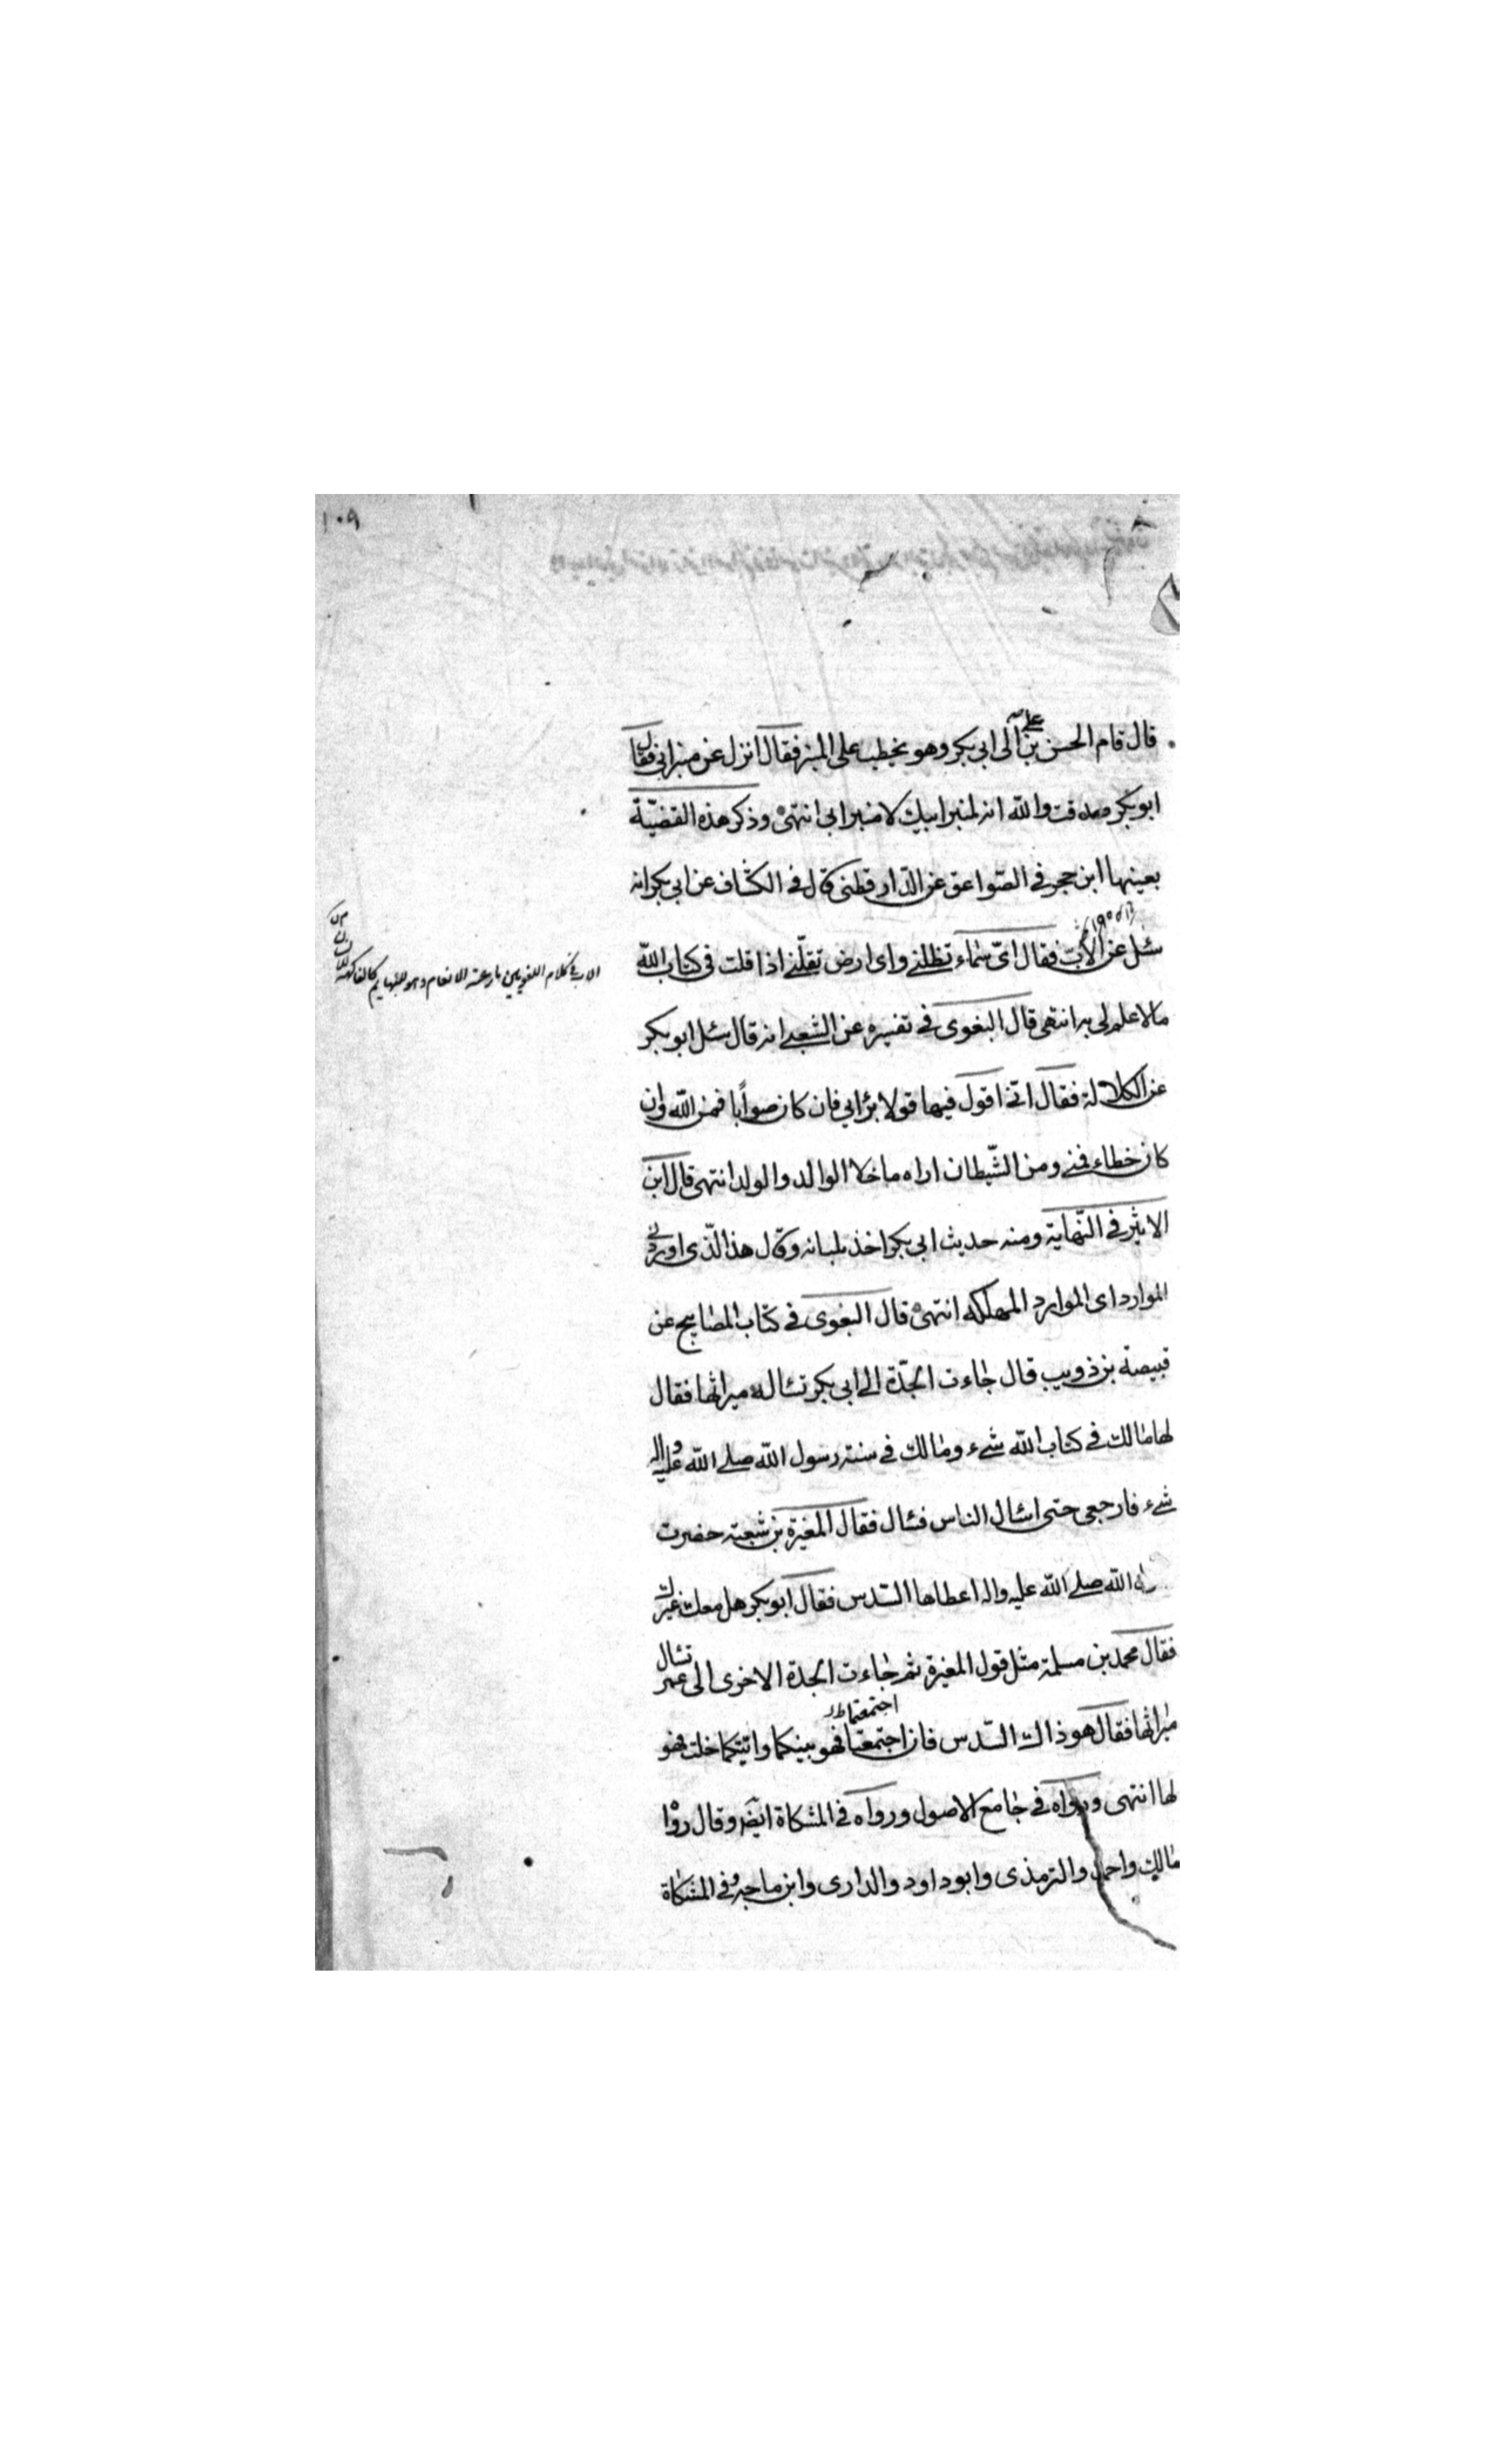 ١٠٩
قال قام الحسن بن علي الى ابي بكر وهو يخطب على المنبر فقال انزل عن منبر ابي فقال
ابوبكر صدقت والله انه لمنبر ابيك لا منبر ابي انتهى وذكر هذه القضيّة
بعينها ابن حجر في الصّواعق عن الدّارقطني قال في الكشاف عن ابي بكر انه
سئل عن الأبّ فقال اىّ سماء تظلني واى ارض تقلّني اذا قلت في كتاب الله
الاب في كلام اللغويين ما رعته الانعام وهو للبهايم كالفاكهة للانسان
ما لا علم لى به انتهى قال البغوى في تفسيره عن الشعبي انه قال سئل ابوبكر
عن الكلالة فقال انّي اقول فيها قولا برأيي فان كان صوابًا فمن الله وان
كان خطاء فمنى ومن الشّيطان اراه ما خلا الوالد والولد انتهى قال ابن
الاثير في النّهاية ومنه حديث ابي بكر اخذ بلسانه وقال هذا الّذى اوردني
الموارد اى الموارد المهلكه انتهى قال البغوى في كتاب المصابيح عن
قبيصة بن ذويب قال جاءت الجدّة الى ابي بكر تسئاله ميراثها فقال
لها مالك في كتاب الله شيء ومالك في سنة رسول الله صلى الله عليه واله
شيء فارجعى حتى اسئال الناس فسئال فقال المغيرة بن شعبة حضرت
الله صلى الله عليه واله اعطاها السّدس فقال ابوبكر هل معك غيرك
فقال محمد بن مسلمة مثل قول المغيرة ثم جاءت الجدة الاخرى الى عمر تسئال
ميراثها فقال هو ذالك السّدس فان اجتمعتما فهو بينكما وايّتكما خلت فهو
اجتمعتما
لها انتهى ورواه في جامع الاصول ورواه في المشكاة ايضه وقال رواه
مالك واحمد والترمذى وابوداود والدارى وابن ماجه وفي المشكاة